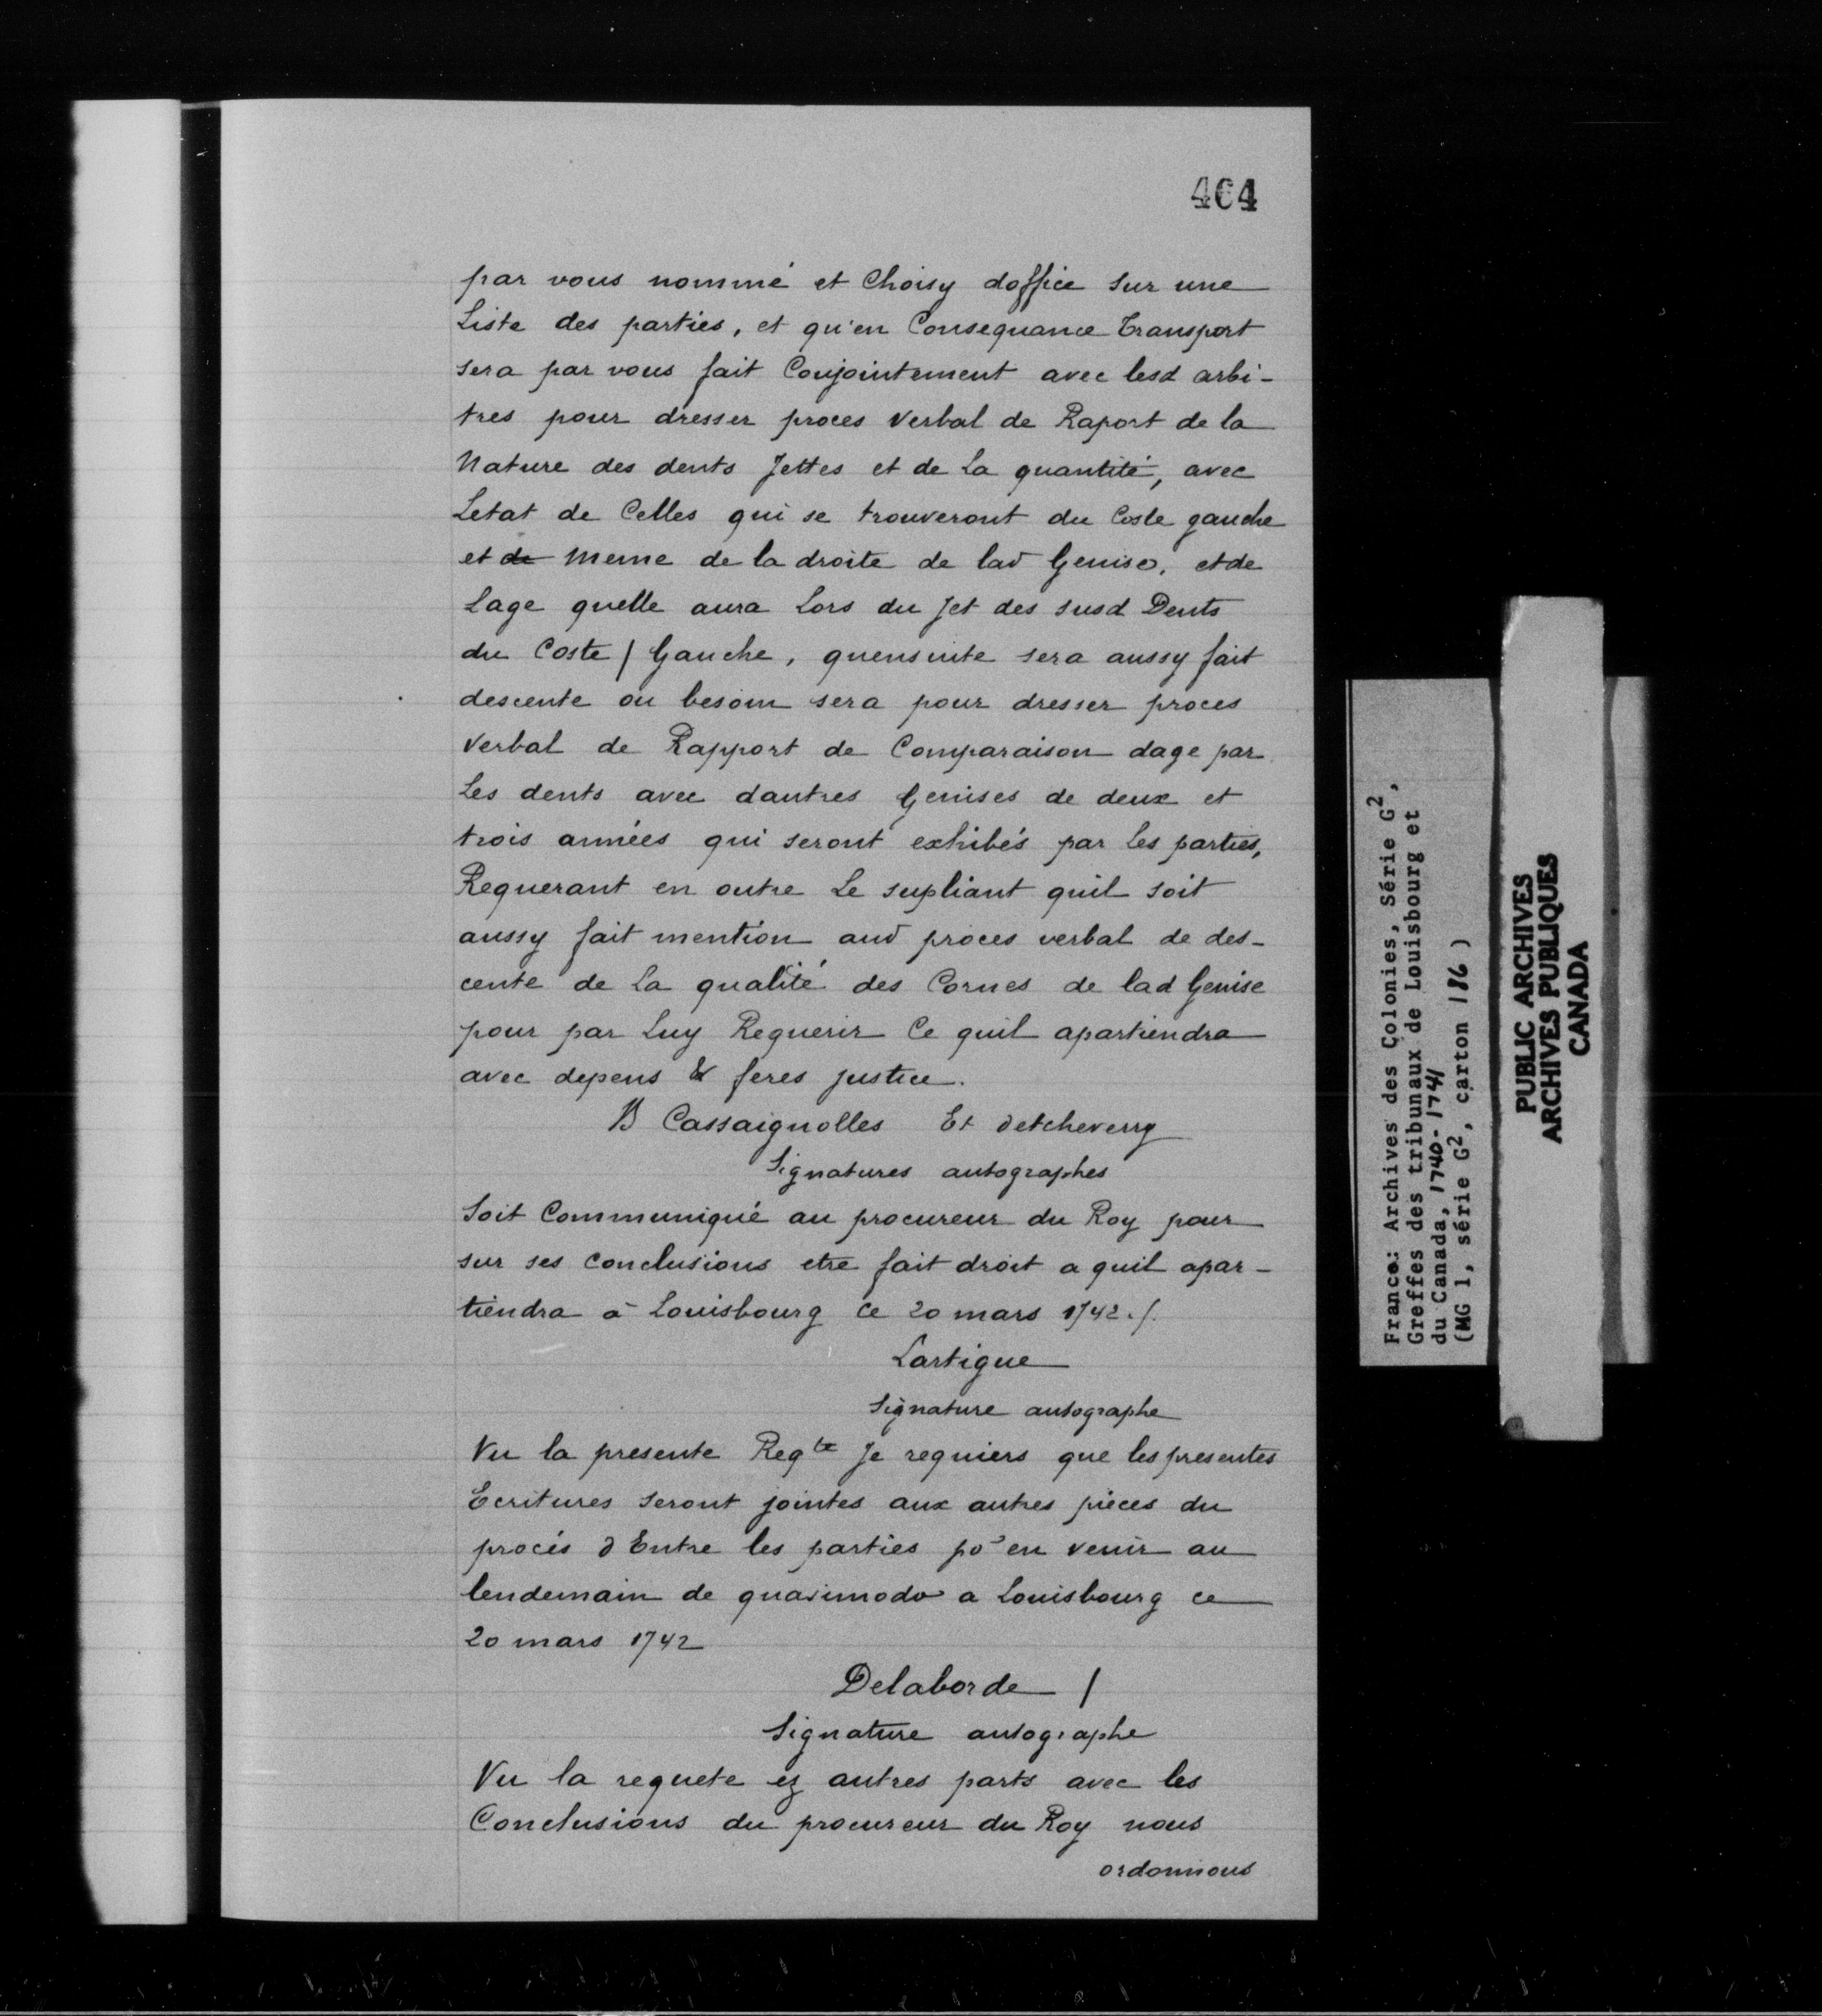 464
par vous nommé et Choisy doffice sur une
Liste des parties, et qu'en Consequance Transport
sera par vous fait Conjointement avec lesd arbi-
tres pour dresser proces Verbal de Raport de la
Nature des dents Jettes et de La quantité, avec
Letat de Celles qui se trouveront du Coste gauche
et de meme de la droite de lad Genise, et de
Lage quelle aura Lors du Jet des susd Dents
du Coste / Gauche, quensuite sera aussy fait
descente ou besoin sera pour dresser proces
Verbal de Rapport de Comparaison dage par
Les dents avec dautres Genises de deux et
trois années qui seront exhibés par Les parties,
Requerant en outre Le supliant quil soit
aussy fait mention aud proces verbal de des-
cente de La qualité des Cornes de lad Genise
pour par Luy Requerir Ce quil apartiendra
avec depens & feres justice.
B Cassaignolles Et detcheverry
Signatures autographes
Soit Communiqué au procureur du Roy pour
sur ses Conclusions etre fait droit a quil apar-
tiendra à Louisbourg Ce 20 mars 1742./.
Lartigue
Signature autographe
Vu la presente Reqte Je requiers que les presentes
Ecritures seront jointes aux autres pieces du
procés d Entre les parties po' en venir au
lendemain de quasimodo a Louisbourg ce
20 mars 1742
Delaborde /
Signature autographe
Vu la requete ez autres parts avec les
Conclusions du procureur du Roy nous
ordonnons
France: Archives des Colonies, Série G2,
Greffes des tribunaux de Louisbourg et
du Canada, 1740-1741
(MG 1, série G2, carton 186)
PUBLIC ARCHIVES
ARCHIVES PUBLIQUES
CANADA